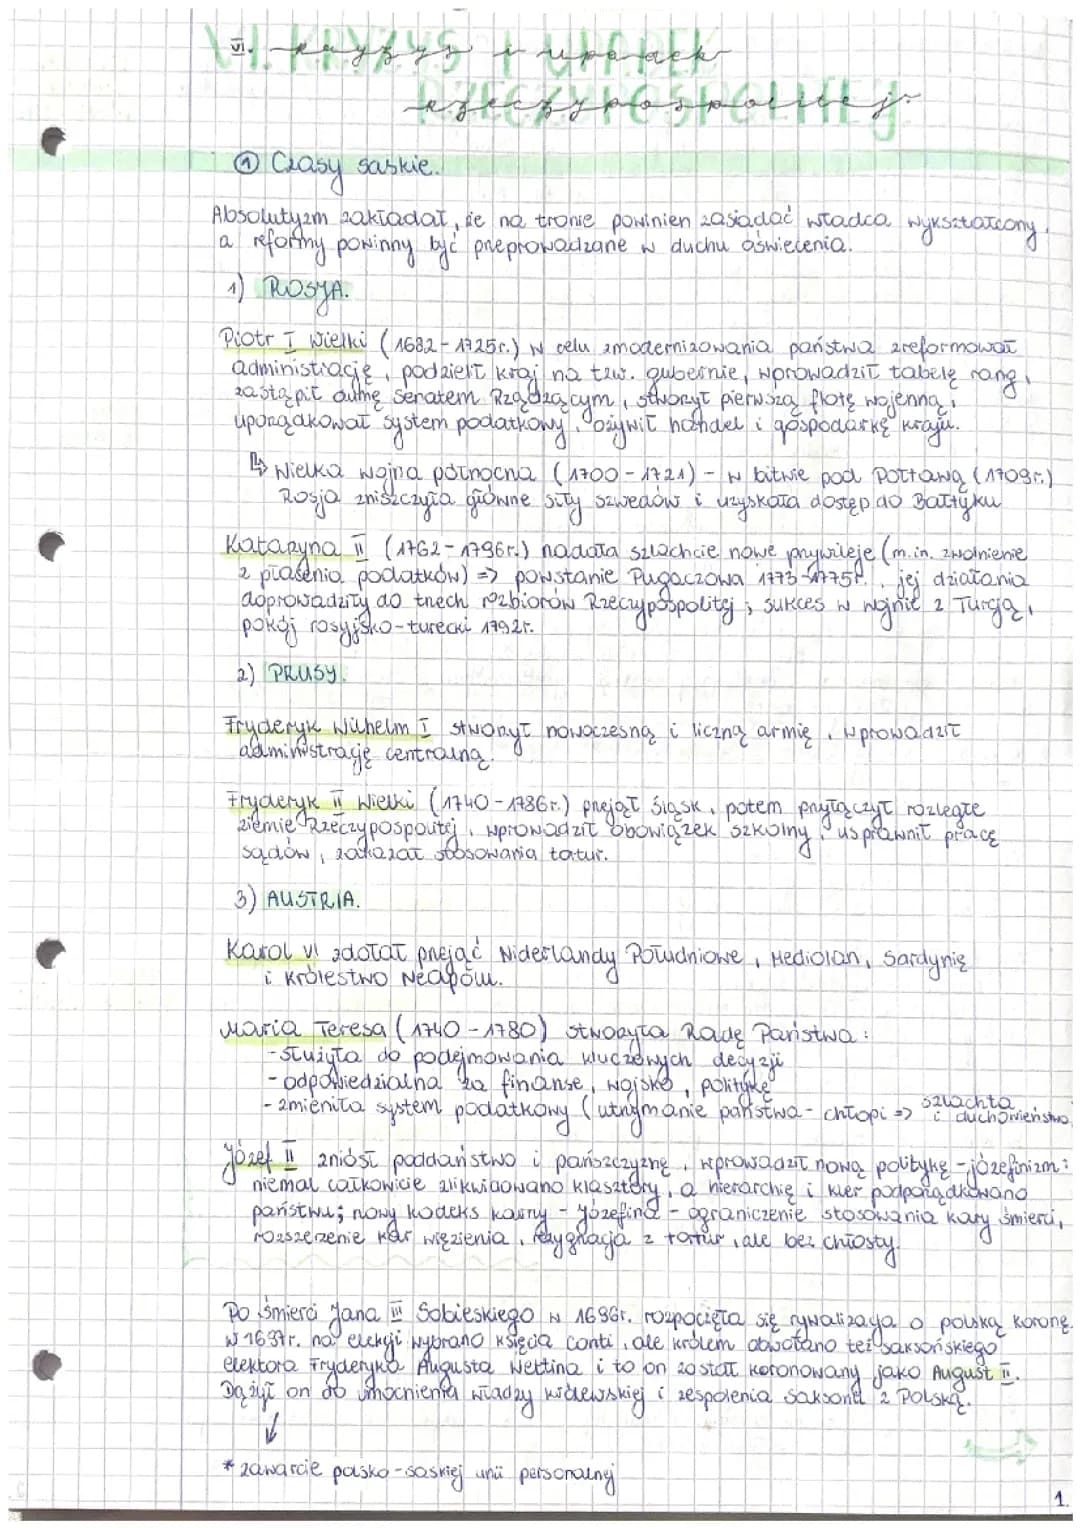 VI. Kryzys i upadek
Rzeczypospolitej.
① Czasy saskie.
Absolutyzm zakładał, że na tronie powinien zasiadać władca wykształcony,
a reformy powinny być przeprowadzane w duchu oświecenia.
1) ROSJA.
Piotr I Wielki (1682-1725r.) w celu zmodernizowania państwa zreformował
administrację, podzielił kraj na tzw. gubernie, wprowadził tabelę rang,
zastąpił dumę Senatem Rządzącym, stworzył pierwszą flotę wojenną,
uporządkował system podatkowy, ożywił handel i gospodarkę kraju.
↳ Wielka wojna północna (1700-1721) - w bitwie pod Połtawą (1709r.)
Rosja zniszczyła główne siły Szwedów i uzyskała dostęp do Bałtyku
Katarzyna II (1762-1796r.) nadała szlachcie nowe przywileje (m.in. zwolnienie
z płacenia podatków) => powstanie Pugaczowa 1773-1775r., jej działania
doprowadziły do trzech rozbiorów Rzeczypospolitej; sukces w wojnie z Turcją,
pokój rosyjsko-turecki 1792r.
2) PRUSY.
Fryderyk Wilhelm I stworzył nowoczesną i liczną armię, wprowadził
administrację centralną.
Fryderyk II Wielki (1740-1786r.) przejął Śląsk, potem przyłączył rozległe
ziemie Rzeczypospolitej, wprowadził obowiązek szkolny, usprawnił pracę
sądów, zakazał stosowania tortur.
3) AUSTRIA.
Karol VI zdołał przejąć Niderlandy Południowe, Mediolan, Sardynię
i Królestwo Neapolu.
Maria Teresa (1740-1780) stworzyła Radę Państwa:
- służyła do podejmowania kluczowych decyzji
- odpowiedzialna za finanse, wojsko, politykę
- zmieniła system podatkowy (utrzymanie państwa - chłopi => szlachta i duchowieństwo
Józef II zniósł poddaństwo i pańszczyznę, wprowadził nową politykę - józefinizm:
niemal całkowicie zlikwidowano klasztory, a hierarchię i kler podporządkowano
państwu; nowy kodeks karny - Józefina - ograniczenie stosowania kary śmierci,
rozszerzenie kar więzienia, rezygnacja z tortur, ale bez chłosty.
Po śmierci Jana III Sobieskiego w 1696r. rozpoczęła się rywalizacja o polską koronę.
W 1697r. na elekcji wybrano księcia Conti, ale królem obwołano też saksońskiego
elektora Fryderyka Augusta Wettina i to on został koronowany jako August II.
Dążył on do umocnienia władzy królewskiej i zespolenia Saksonii z Polską.
↓
* zawarcie polsko-saskiej unii personalnej
1.